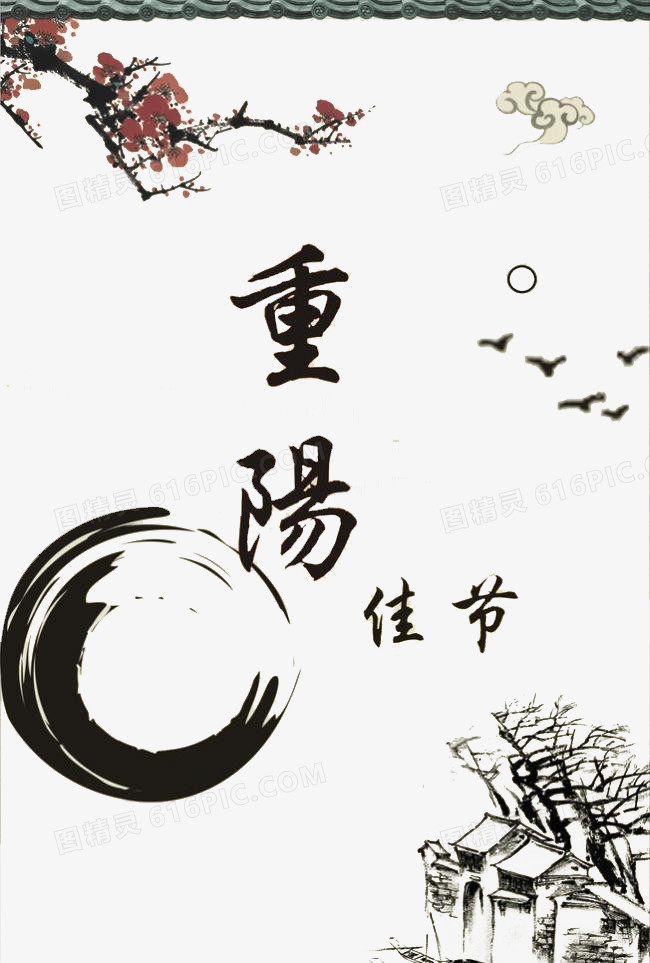 图精灵 616PIC.COM
图精灵 616PIC.COM
重
陽
图精灵 616PIC.COM
图精灵 616PIC.COM
佳节
图精灵 616PIC.COM